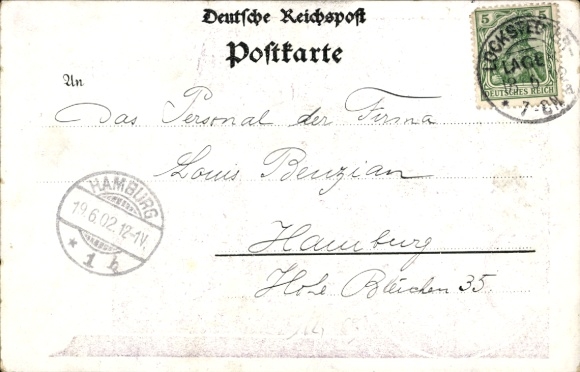 Deutsche Reichspost
Postkarte
An
Das Personal der Firma
Louis Benzian
Hamburg
Hohe Bleichen 35.
5 5
DEUTSCHES REICH
LOCKSTEDT
LAGER
7-8N
HAMBURG
19.6.02.12-1V.
* 1 h